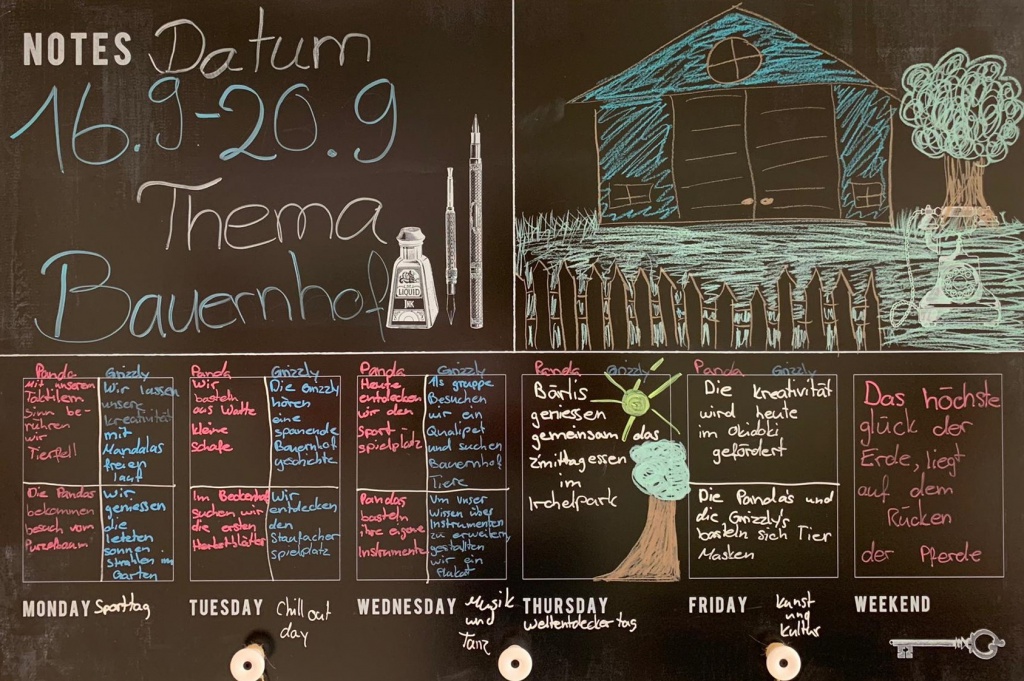 NOTES Datum
16.9-20.9
Thema
Bauernhof
LIQUID
INK
Panda Grizzly
Mit unserem
Taktilem
Sinn be-
rühren
wir
Tierfell
Wir lassen
unsere
kreativität
mit
Mandalas
freien
lauf
Die Pandas
bekommen
besuch vom
Purzelbaum
Wir
geniessen
die
letzten
sonnen
strahlen im
Garten
MONDAY Sporttag
Panda Grizzly
Wir
basteln
aus Watte
kleine
Schafe
Die Grizzly
hören
eine
spanende
Bauernhof
geschichte
Im Beckenhof
Suchen wir
die ersten
Herbstblätter
Wir
entdecken
den
Staufacher
spielplatz
TUESDAY Chill out
day
Panda Grizzly
Heute
entdecken
wir den
Sport
spielplatz
Als gruppe
Besuchen
wir ein
Qualipet
und suchen
Bauernhof
Tiere
Pandas
basteln
ihre eigene
Instrumente
Um unser
Wissen über
Instrumenten
zu erweitern
gestallten
wir ein
Plakat
WEDNESDAY Musik
und
Tanz
Panda Grizzly
Bärlis
geniessen
gemeinsam das
Zmittagessen
im
Irchelpark
THURSDAY
Weltentdecker tag
Panda Grizzly
Die kreativität
wird heute
im Okidoki
gefördert
Die Panda's und
die Grizzly's
basteln sich Tier
Masken
FRIDAY kunst
und
kultur
Das höchste
glück der
Erde, liegt
auf dem
Rücken
der Pferde
WEEKEND